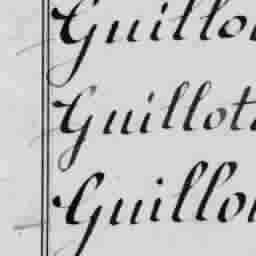 Guillo
Guillot
Guillo